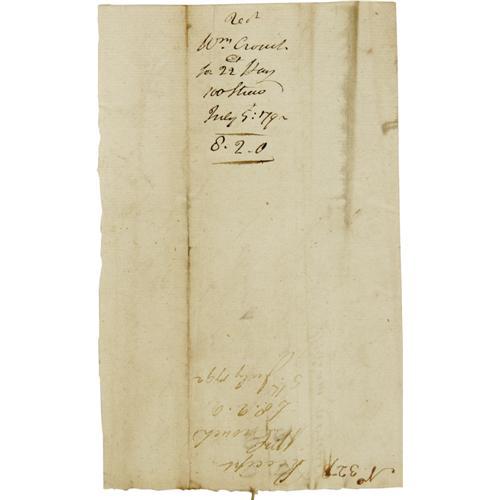 Rect
Wm Crouch
for 22 Ct Hay
100 Straw
July 5th: 1792
8.2.0
Receipt
Wm Crouch
£8.2.0
5th July 1792
No 327